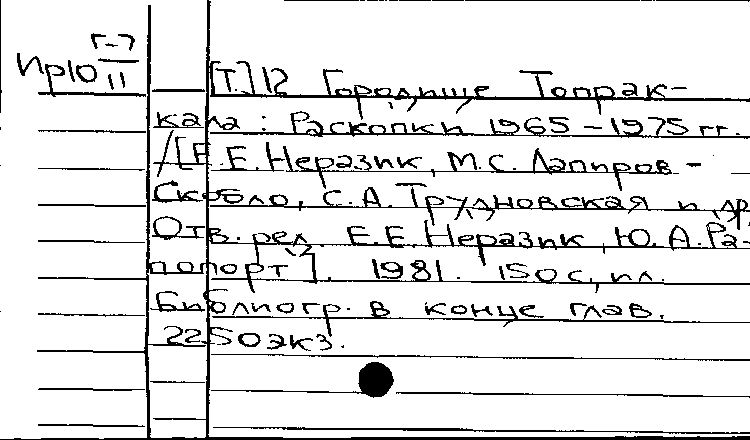 Г-7
ИрЮ 11
[Т.] 12 Городище Топрак-
кала: Раскопки 1965-1975 гг.
/[Е.Е. Неразик, М.С. Лапиров-
Скобло, С.А. Трудновская и др.
Отв. ред. Е.Е. Неразик, Ю.А. Ра-
попорт]. 1981. 150 с, ил.
Библиогр. в конце глав.
2250 экз.